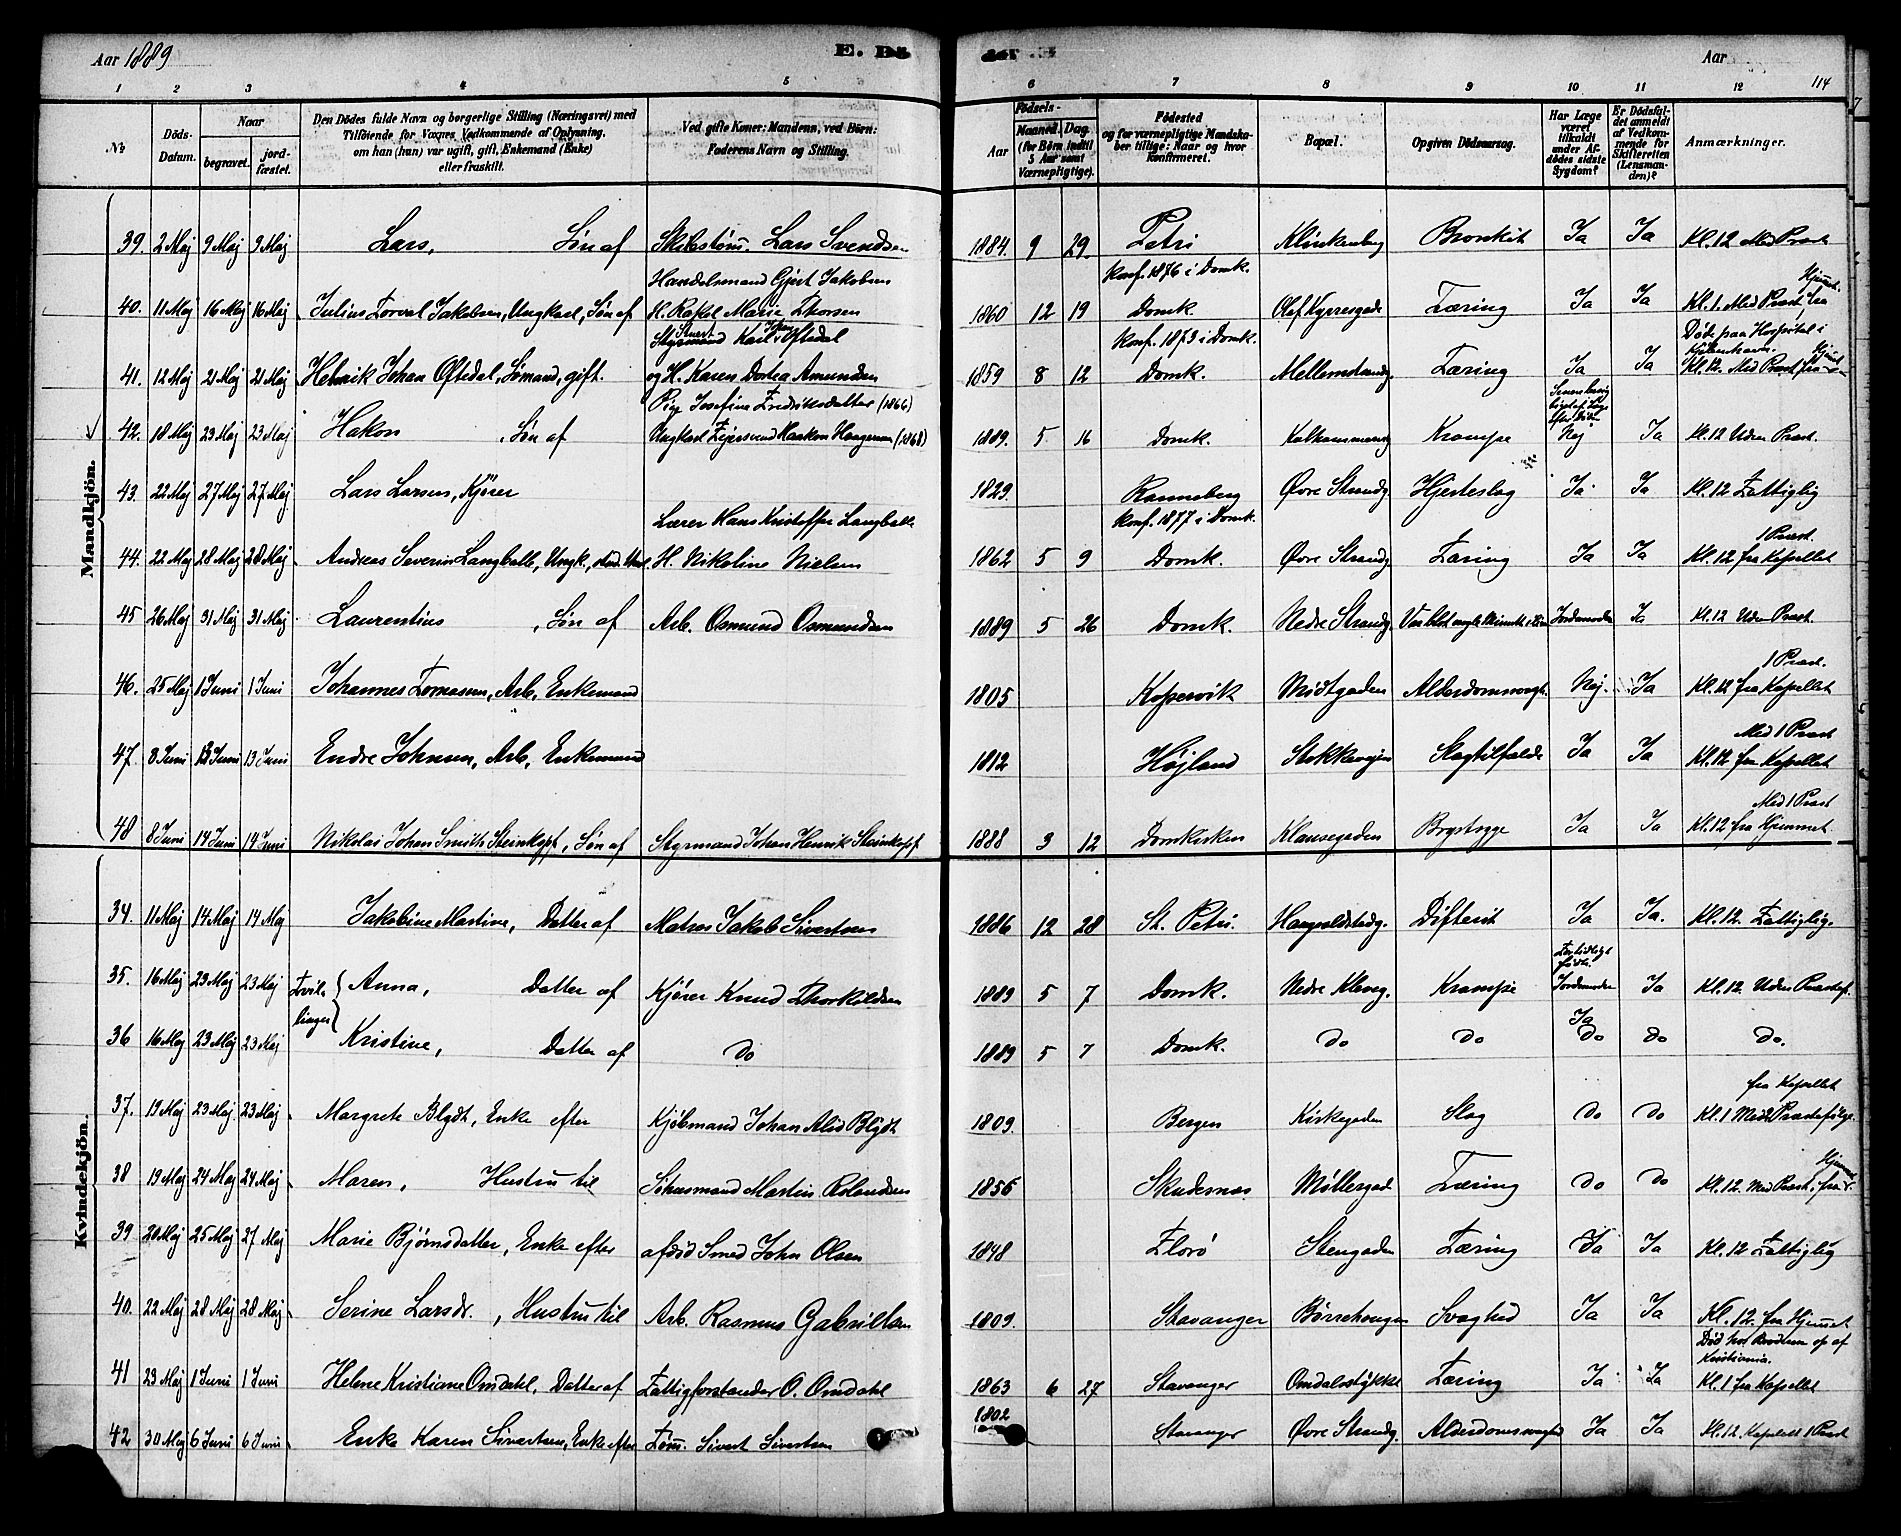 Aar 1889
E. Dø
Aar
114
1 2 3 4 5 6 7 8 9 10 11 12
No
Döds-Datum.
Naar
begravet.
jord-fæstet.
Den Dödes fulde Navn og borgerlige Stilling (Næringsvei) med Tilföiende for Voxnes Vedkommende af Oplysning, om han (hun) var ugift, gift, Enkemand (Enke) eller fraskilt.
Ved gifte Koner: Mandens, ved Börn: Faderens Navn og Stilling.
Födsels-
Aar
Maaned. Dag.
(for Börn indtil 5 Aar samt Værnepligtige).
Födested og for værnepligtige Mandskaber tillige: Naar og hvor Konfirmeret.
Bopæl.
Opgiven Dödsaarsag.
Har Læge været tilkaldt under Afdödes sidste Sygdom?
Er Dödsfaldet anmeldt af Vedkommende for Skifteretten (Lensmanden)?
Anmærkninger.
Mandkjön.
39. 2 Maj 9 Maj 9 Maj Lars, Søn af Skibstøm. Lars Svendsen 1884 9 29 Petri Klinkenberg Bronkit Ja Ja Kl. 12 Med Præst
40. 11 Maj 16 Maj 16 Maj Julius Torval Jakobsen, Ungkarl, Søn af Handelsmand Gjert Jakobsen H. Rakel Marie Thorsen 1860 12 19 Konf. 1876 i Domk. Domk. Olaf Kyrresgade Tæring Ja Ja Kl. 1. Med Præst fra Hjemmet.
41. 12 Maj 21 Maj 21 Maj Henrik Johan Oftedal, Sømand, gift. Styrmand Karl Johan Oftedal og H. Karen Dortea Amundsen 1859 8 12 Konf. 1873 i Domk. Domk. Mellemstrandg. Tæring Ja Ja Døde paa Hospital i Kjøbenhavn. Kl. 12. Med Præst fra Hjemmet
42. 18 Maj 23 Maj 23 Maj Hakon, Søn af Pige Josefine Fredriksdatter (1866) Ungkarl Hagensen (1868) 1889. 5 16 Domk. Krampe Nej Ja Kl. 12 Uden Præst.
43. 22 Maj 27 Maj 27 Maj Lars Larsen, Kjører 1829. Ranneberg Øvre Strandg Hjerteslag Ja Ja Kl. 12 Fattiglig
44. 22 Maj 28 Maj 28 Maj Andreas Severin Langballe, Ungk., stud. Lærer Hans Kristoffer Langballe H. Nikoline Nielsen 1862 5 9 Konf. 1877 i Domk. Domk. Øvre Strandg Tæring Ja Ja Kl. 12 fra Kapellet 1 Præst.
45 26 Maj 31 Maj 31 Maj Laurentius, Søn af Arb. Osmund Osmundsen 1889 5 26 Domk. Nedre Strandg. Jordemoder Ja Kl. 12 Uden Præst.
46. 25 Maj 1 Juni 1 Juni Johannes Tomasen, Arb., Enkemand 1805 Kopervik Midtgaden Alderdomssvagh. Nej. Ja Kl. 12 fra Kapellet 1 Præst.
47. 8 Juni 13 Juni 13 Juni Endre Johnsen, Arb., Enkemand 1812 Højland Stokkavejen Slagtilfælde Ja Ja Kl. 12 fra Kapellet Med 1 Præst
48 8 Juni 14 Juni 14 Juni Nikolai Johan Smith Steinkopf, Søn af Styrmand Johan Henrik Steinkopf 1888 3 12 Domkirken Klausegaden Brystsyge Ja Ja Kl. 12 fra Hjemmet. Med 1 Præst
Kvindekjön.
34. 11 Maj 14 Maj 14 Maj Jakobine Martine, Datter af Matros Jakob Sivertsen 1886 12 28 St. Petri. Haugvaldstadg. Difterit Ja Ja. Kl. 12. Fattiglig.
35. 16 Maj 23 Maj 23 Maj Tvillinger Anna, Datter af Kjører Knud Thorkildsen 1889 5 7 Domk. Nedre Klevg. Krampe For tidligt født. Jordemoder Ja Ja Kl. 12. Uden Præstef.
36 16 Maj 23 Maj 23 Maj Kristine, Datter af Do 1889 5 7 Domk. Do Do Do Do Do.
37. 19 Maj 23 Maj. 23 Maj. Margrete Blydt, Enke efter Kjøbmand Johan Blydt 1809. Bergen Kirkegaden Slag Do Do Kl. 1 Med Præstefølge. fra Kapellet
38 19 Maj 24 Maj 24 Maj Maren, Hustru til Sjømand Martin Rolandsen 1856 Skudesnæs Møllergad Tæring Do Do Kl. 12. Med Præst. fra Hjemmet.
39 20 Maj 25 Maj 27 Maj Marie Bjørnsdatter, Enke efter afdød Smed John Olsen 1848 Florø Stengaden Tæring Ja Ja Kl. 12 Fattiglig
40. 22 Maj 28 Maj 28 Maj Serine Larsdr., Hustru til Arb. Rasmus Gabrielsen 1809. Stavanger Børrehaugen Svaghed Ja Ja Kl. 12. fra Hjemmet
41 23 Maj 1 Juni 1 Juni Helene Kristiane Omdahl, Datter af Fattigforstander O. Omdahl 1863 6 27 Stavanger Omdalsstykket Tæring Ja Ja Kristiania. Kl. 1 fra Kapellet
42 30 Maj 6 Juni 6 Juni Enke Karen Sivertsen, Enke efter Tøm. Sivert Sivertsen 1802 Stavanger Øvre Strandg. Alderdomssvaghed Ja Ja Kl. 12. Kapellet 1 Præst